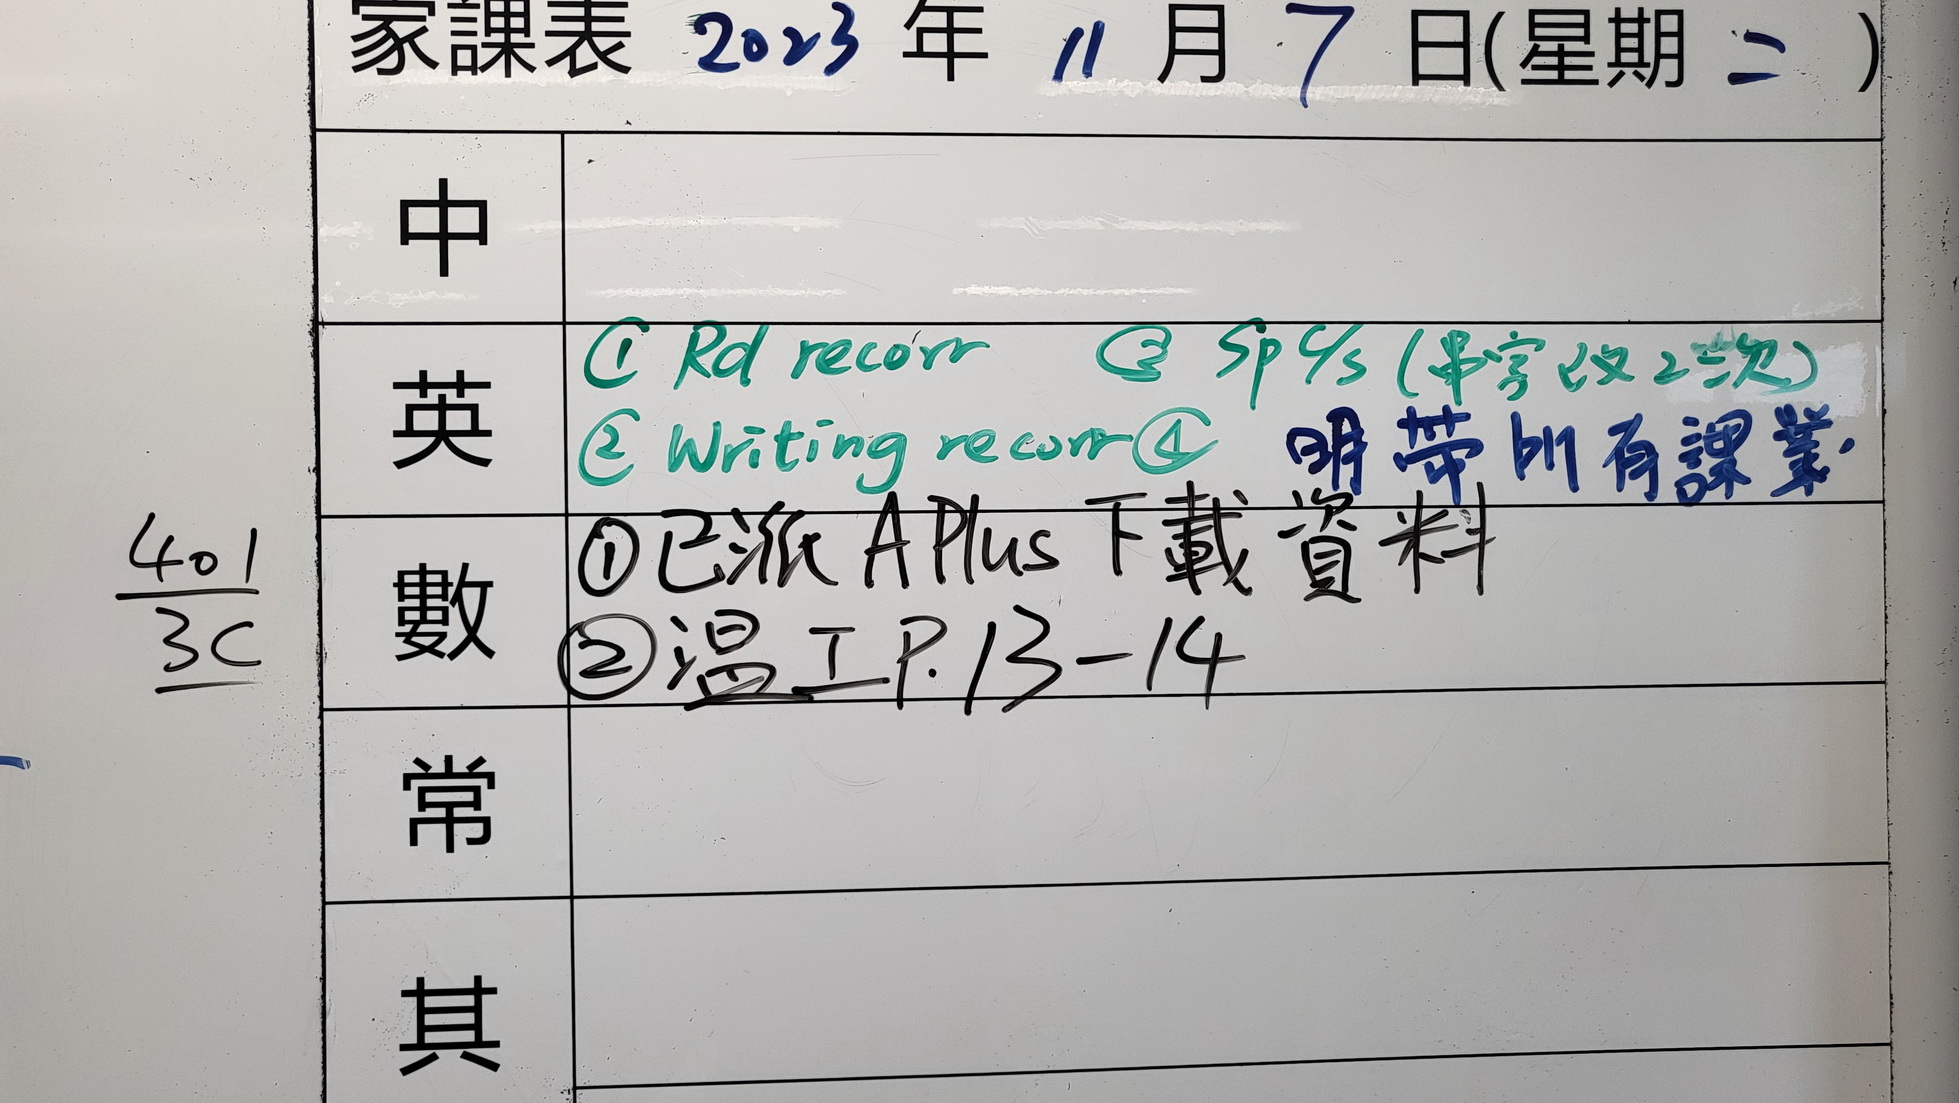 家課表 2023 年 11 月 7 日(星期 二 )
中
英
① Rd recorr ③ Sp C/s (串字改2次)
② Writing recorr ④ 明帶所有課業.
數
①已派 A Plus 下載資料
②温工 P.13-14
401
3C
常
其